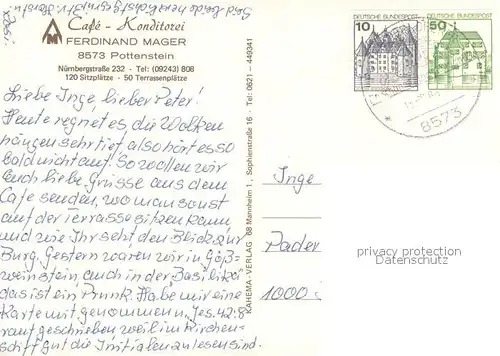 Café - Konditorei
FERDINAND MAGER
8573 Pottenstein
Nürnbergstraße 232 - Tel: (09243) 808
120 Sitzplätze - 50 Terrassenplätze
Liebe Inge, lieber Peter!
Heute regnet es, die Wolken
hängen sehr tief also hört es so
bald nicht auf. So wollen wir
Euch liebe Grüsse aus dem
Cafe senden, wo man sonst
auf der Terrasse sitzen kann
und wie Ihr seht den Blick zur
Burg. Gestern waren wir in Göß=
weinstein auch in der Basilika
das ist ein Prunk. Habe mir eine
Karte mit genommen „Jes. 42:8"
rauf geschrieben weil im Kirchen-
schiff gut die Initialen zu lesen sind.
KAHEMA-VERLAG 68 Mannheim 1, Sophienstraße 16 Tel: 0621 - 449341
DEUTSCHE BUNDESPOST
10
DEUTSCHE BUNDESPOST
50
8573
Inge
Pader
1000
privacy protection
© Ansichtskarten-Center.DE